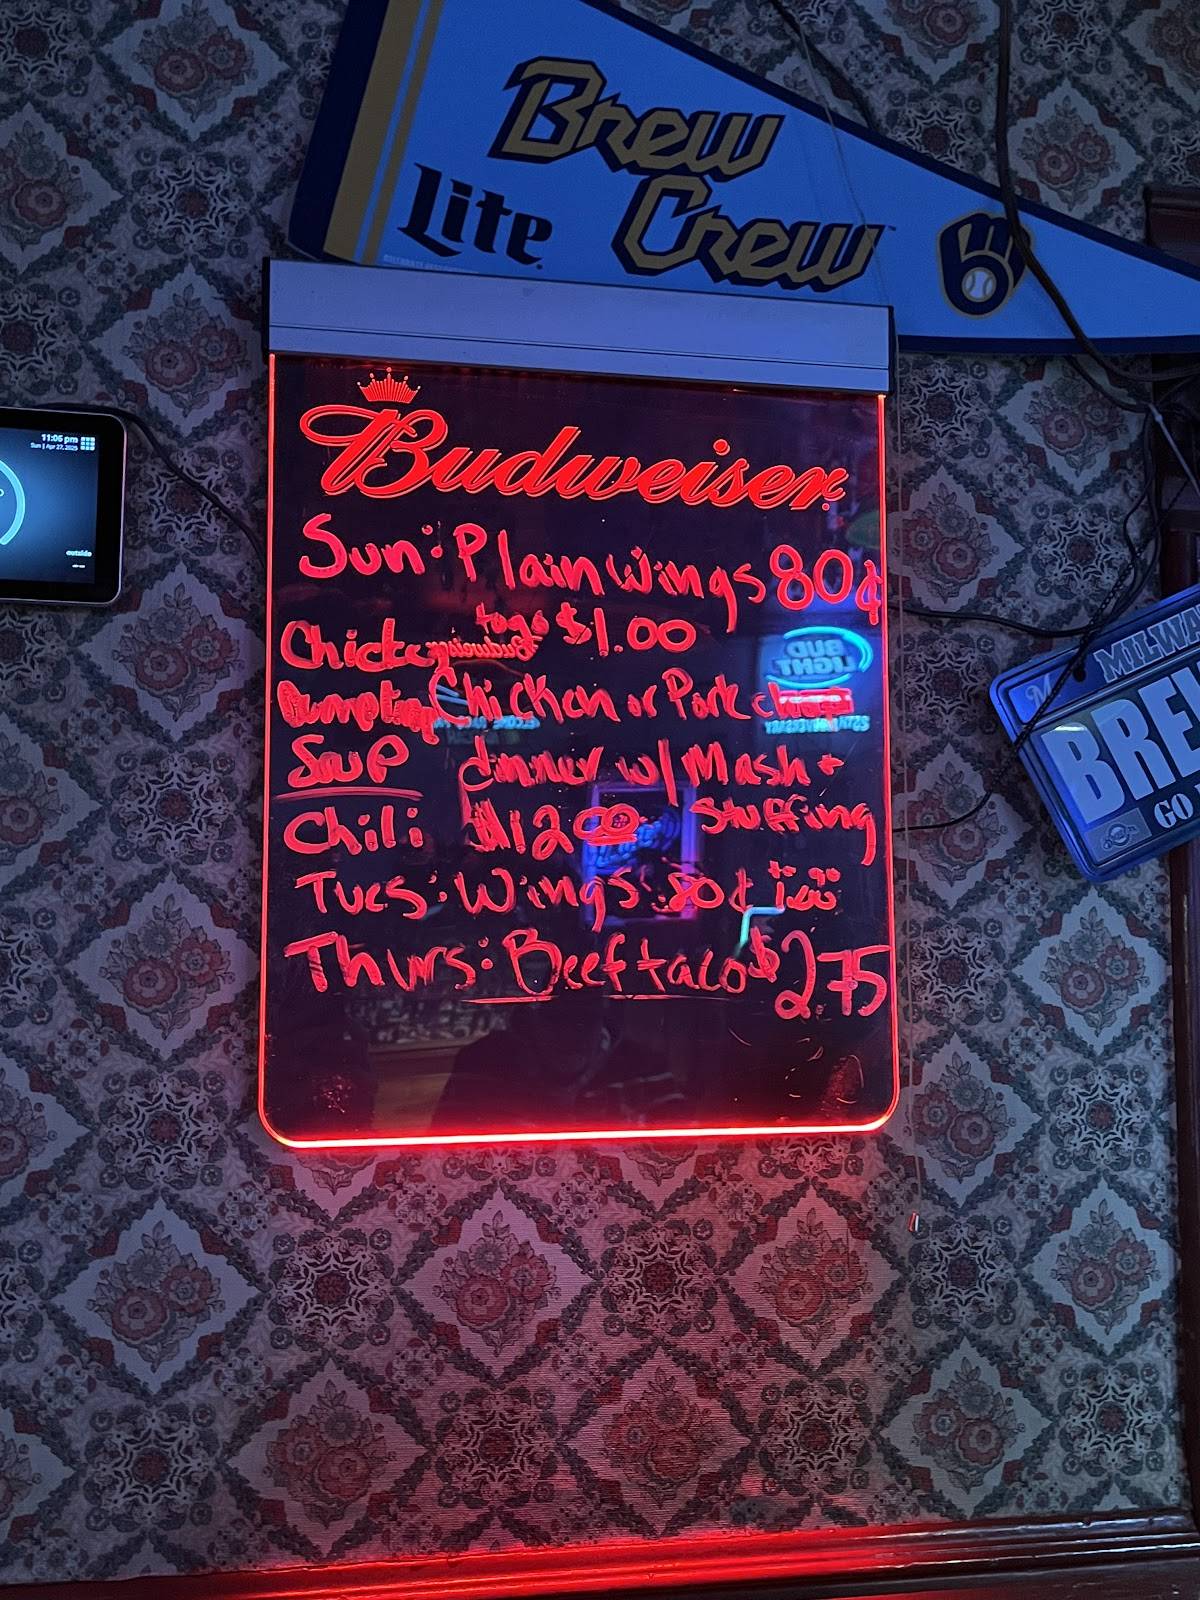 Brew
Crew
Lite
11:06 pm
Sun | Apr 27, 2025
outside
Budweiser
Sun: Plain Wings 80¢
togo $1.00
Chicken
Dumpling
Soup
Chili
Chicken or Pork chops
dinner w/ Mash +
$12.00 Stuffing
Tues: Wings .80¢ to go 1.00
Thurs: Beef taco $2.75
BUD
LIGHT
MILWA
BRE
GO